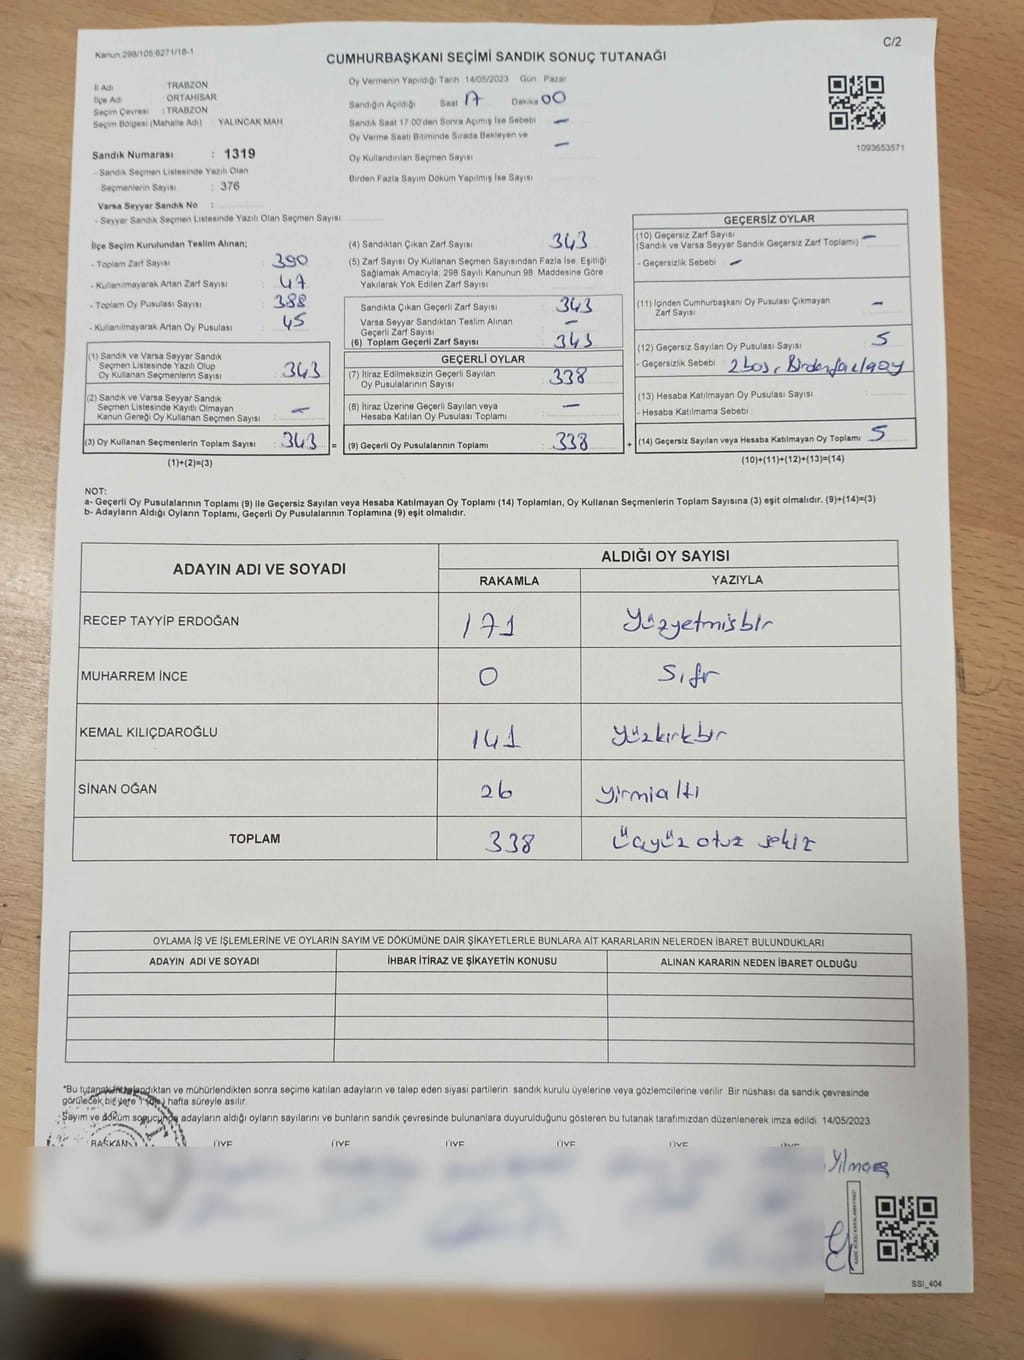 Kanun 298/105,6271/18-1
C/2
CUMHURBAŞKANI SEÇİMİ SANDIK SONUÇ TUTANAĞI
İl Adı : TRABZON
İlçe Adı : ORTAHİSAR
Seçim Çevresi : TRABZON
Seçim Bölgesi (Mahalle Adı) : YALINCAK MAH
Sandık Numarası : 1319
- Sandık Seçmen Listesinde Yazılı Olan
Seçmenlerin Sayısı : 376
Varsa Seyyar Sandık No :
- Seyyar Sandık Seçmen Listesinde Yazılı Olan Seçmen Sayısı
Oy Vermenin Yapıldığı Tarih 14/05/2023 Gün Pazar
Sandığın Açıldığı Saat 17 Dakika 00
Sandık Saat 17:00'den Sonra Açımış İse Sebebi —
Oy Verme Saati Bitiminde Sırada Bekleyen ve
Oy Kullandırılan Seçmen Sayısı —
Birden Fazla Sayım Döküm Yapılmış İse Sayısı
1093653571
İlçe Seçim Kurulundan Teslim Alınan;
- Toplam Zarf Sayısı : 390
- Kullanılmayarak Artan Zarf Sayısı : 47
- Toplam Oy Pusulası Sayısı : 388
- Kullanılmayarak Artan Oy Pusulası : 45
(1) Sandık ve Varsa Seyyar Sandık
Seçmen Listesinde Yazılı Olup
Oy Kullanan Seçmenlerin Sayısı : 343
(2) Sandık ve Varsa Seyyar Sandık
Seçmen Listesinde Kayıtlı Olmayan
Kanun Gereği Oy Kullanan Seçmen Sayısı : —
(3) Oy Kullanan Seçmenlerin Toplam Sayısı : 343 =
(1)+(2)=(3)
(4) Sandıktan Çıkan Zarf Sayısı : 343
(5) Zarf Sayısı Oy Kullanan Seçmen Sayısından Fazla İse, Eşitliği
Sağlamak Amacıyla; 298 Sayılı Kanunun 98. Maddesine Göre
Yakılarak Yok Edilen Zarf Sayısı :
Sandıkta Çıkan Geçerli Zarf Sayısı : 343
Varsa Seyyar Sandıktan Teslim Alınan
Geçerli Zarf Sayısı : —
(6) Toplam Geçerli Zarf Sayısı : 343
GEÇERLİ OYLAR
(7) İtiraz Edilmeksizin Geçerli Sayılan
Oy Pusulalarının Sayısı : 338
(8) İtiraz Üzerine Geçerli Sayılan veya
Hesaba Katılan Oy Pusulası Toplamı : —
(9) Geçerli Oy Pusulalarının Toplamı : 338 +
GEÇERSİZ OYLAR
(10) Geçersiz Zarf Sayısı
(Sandık ve Varsa Seyyar Sandık Geçersiz Zarf Toplamı) : —
- Geçersizlik Sebebi : —
(11) İçinden Cumhurbaşkanı Oy Pusulası Çıkmayan
Zarf Sayısı : —
(12) Geçersiz Sayılan Oy Pusulası Sayısı : 5
- Geçersizlik Sebebi : 2 boş, Birdenfazlaoy
(13) Hesaba Katılmayan Oy Pusulası Sayısı :
- Hesaba Katılmama Sebebi :
(14) Geçersiz Sayılan veya Hesaba Katılmayan Oy Toplamı : 5
(10)+(11)+(12)+(13)=(14)
NOT:
a- Geçerli Oy Pusulalarının Toplamı (9) ile Geçersiz Sayılan veya Hesaba Katılmayan Oy Toplamı (14) Toplamları, Oy Kullanan Seçmenlerin Toplam Sayısına (3) eşit olmalıdır. (9)+(14)=(3)
b- Adayların Aldığı Oyların Toplamı, Geçerli Oy Pusulalarının Toplamına (9) eşit olmalıdır.
ADAYIN ADI VE SOYADI
ALDIĞI OY SAYISI
RAKAMLA YAZIYLA
RECEP TAYYİP ERDOĞAN 171 Yüzyetmişbir
MUHARREM İNCE 0 Sıfır
KEMAL KILIÇDAROĞLU 141 yüzkırkbir
SİNAN OĞAN 26 yirmialtı
TOPLAM 338 üçyüz otuz sekiz
OYLAMA İŞ VE İŞLEMLERİNE VE OYLARIN SAYIM VE DÖKÜMÜNE DAİR ŞİKAYETLERLE BUNLARA AİT KARARLARIN NELERDEN İBARET BULUNDUKLARI
ADAYIN ADI VE SOYADI İHBAR İTİRAZ VE ŞİKAYETİN KONUSU ALINAN KARARIN NEDEN İBARET OLDUĞU
*Bu tutanak imzalandıktan ve mühürlendikten sonra seçime katılan adayların ve talep eden siyasi partilerin sandık kurulu üyelerine veya gözlemcilerine verilir. Bir nüshası da sandık çevresinde
görülecek bir yere 1 (bir) hafta süreyle asılır.
Sayım ve döküm sonucunda adayların aldığı oyların sayılarını ve bunların sandık çevresinde bulunanlara duyurulduğunu gösteren bu tutanak tarafımızdan düzenlenerek imza edildi. 14/05/2023
BAŞKAN ÜYE ÜYE ÜYE ÜYE ÜYE ÜYE
Yılmaz
SSİ_404